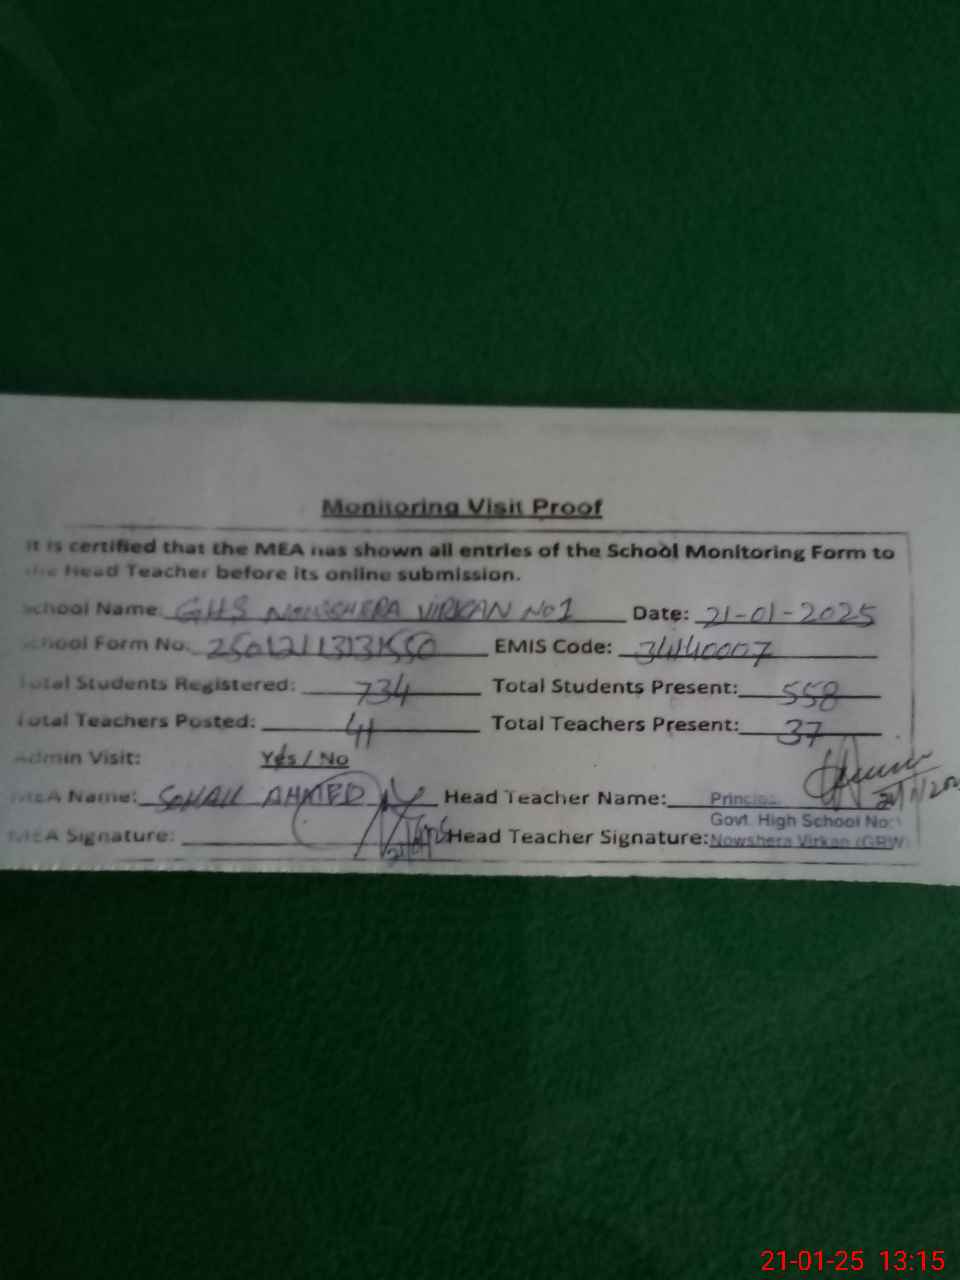 Monitoring Visit Proof
It is certified that the MEA has shown all entries of the School Monitoring Form to
the Head Teacher before its online submission.
School Name: GHS NOWSHERA VIRKAN No1 Date: 21-01-2025
School Form No: EMIS Code: 34140007
Total Students Registered: 734 Total Students Present: 558
Total Teachers Posted: 41 Total Teachers Present: 37
Admin Visit: Yes / No
MEA Name: SOHAIL AHMED Head Teacher Name: Principal
Govt. High School No:1
MEA Signature: Head Teacher Signature: Nowshera Virkan (GRW
21-01-25 13:15